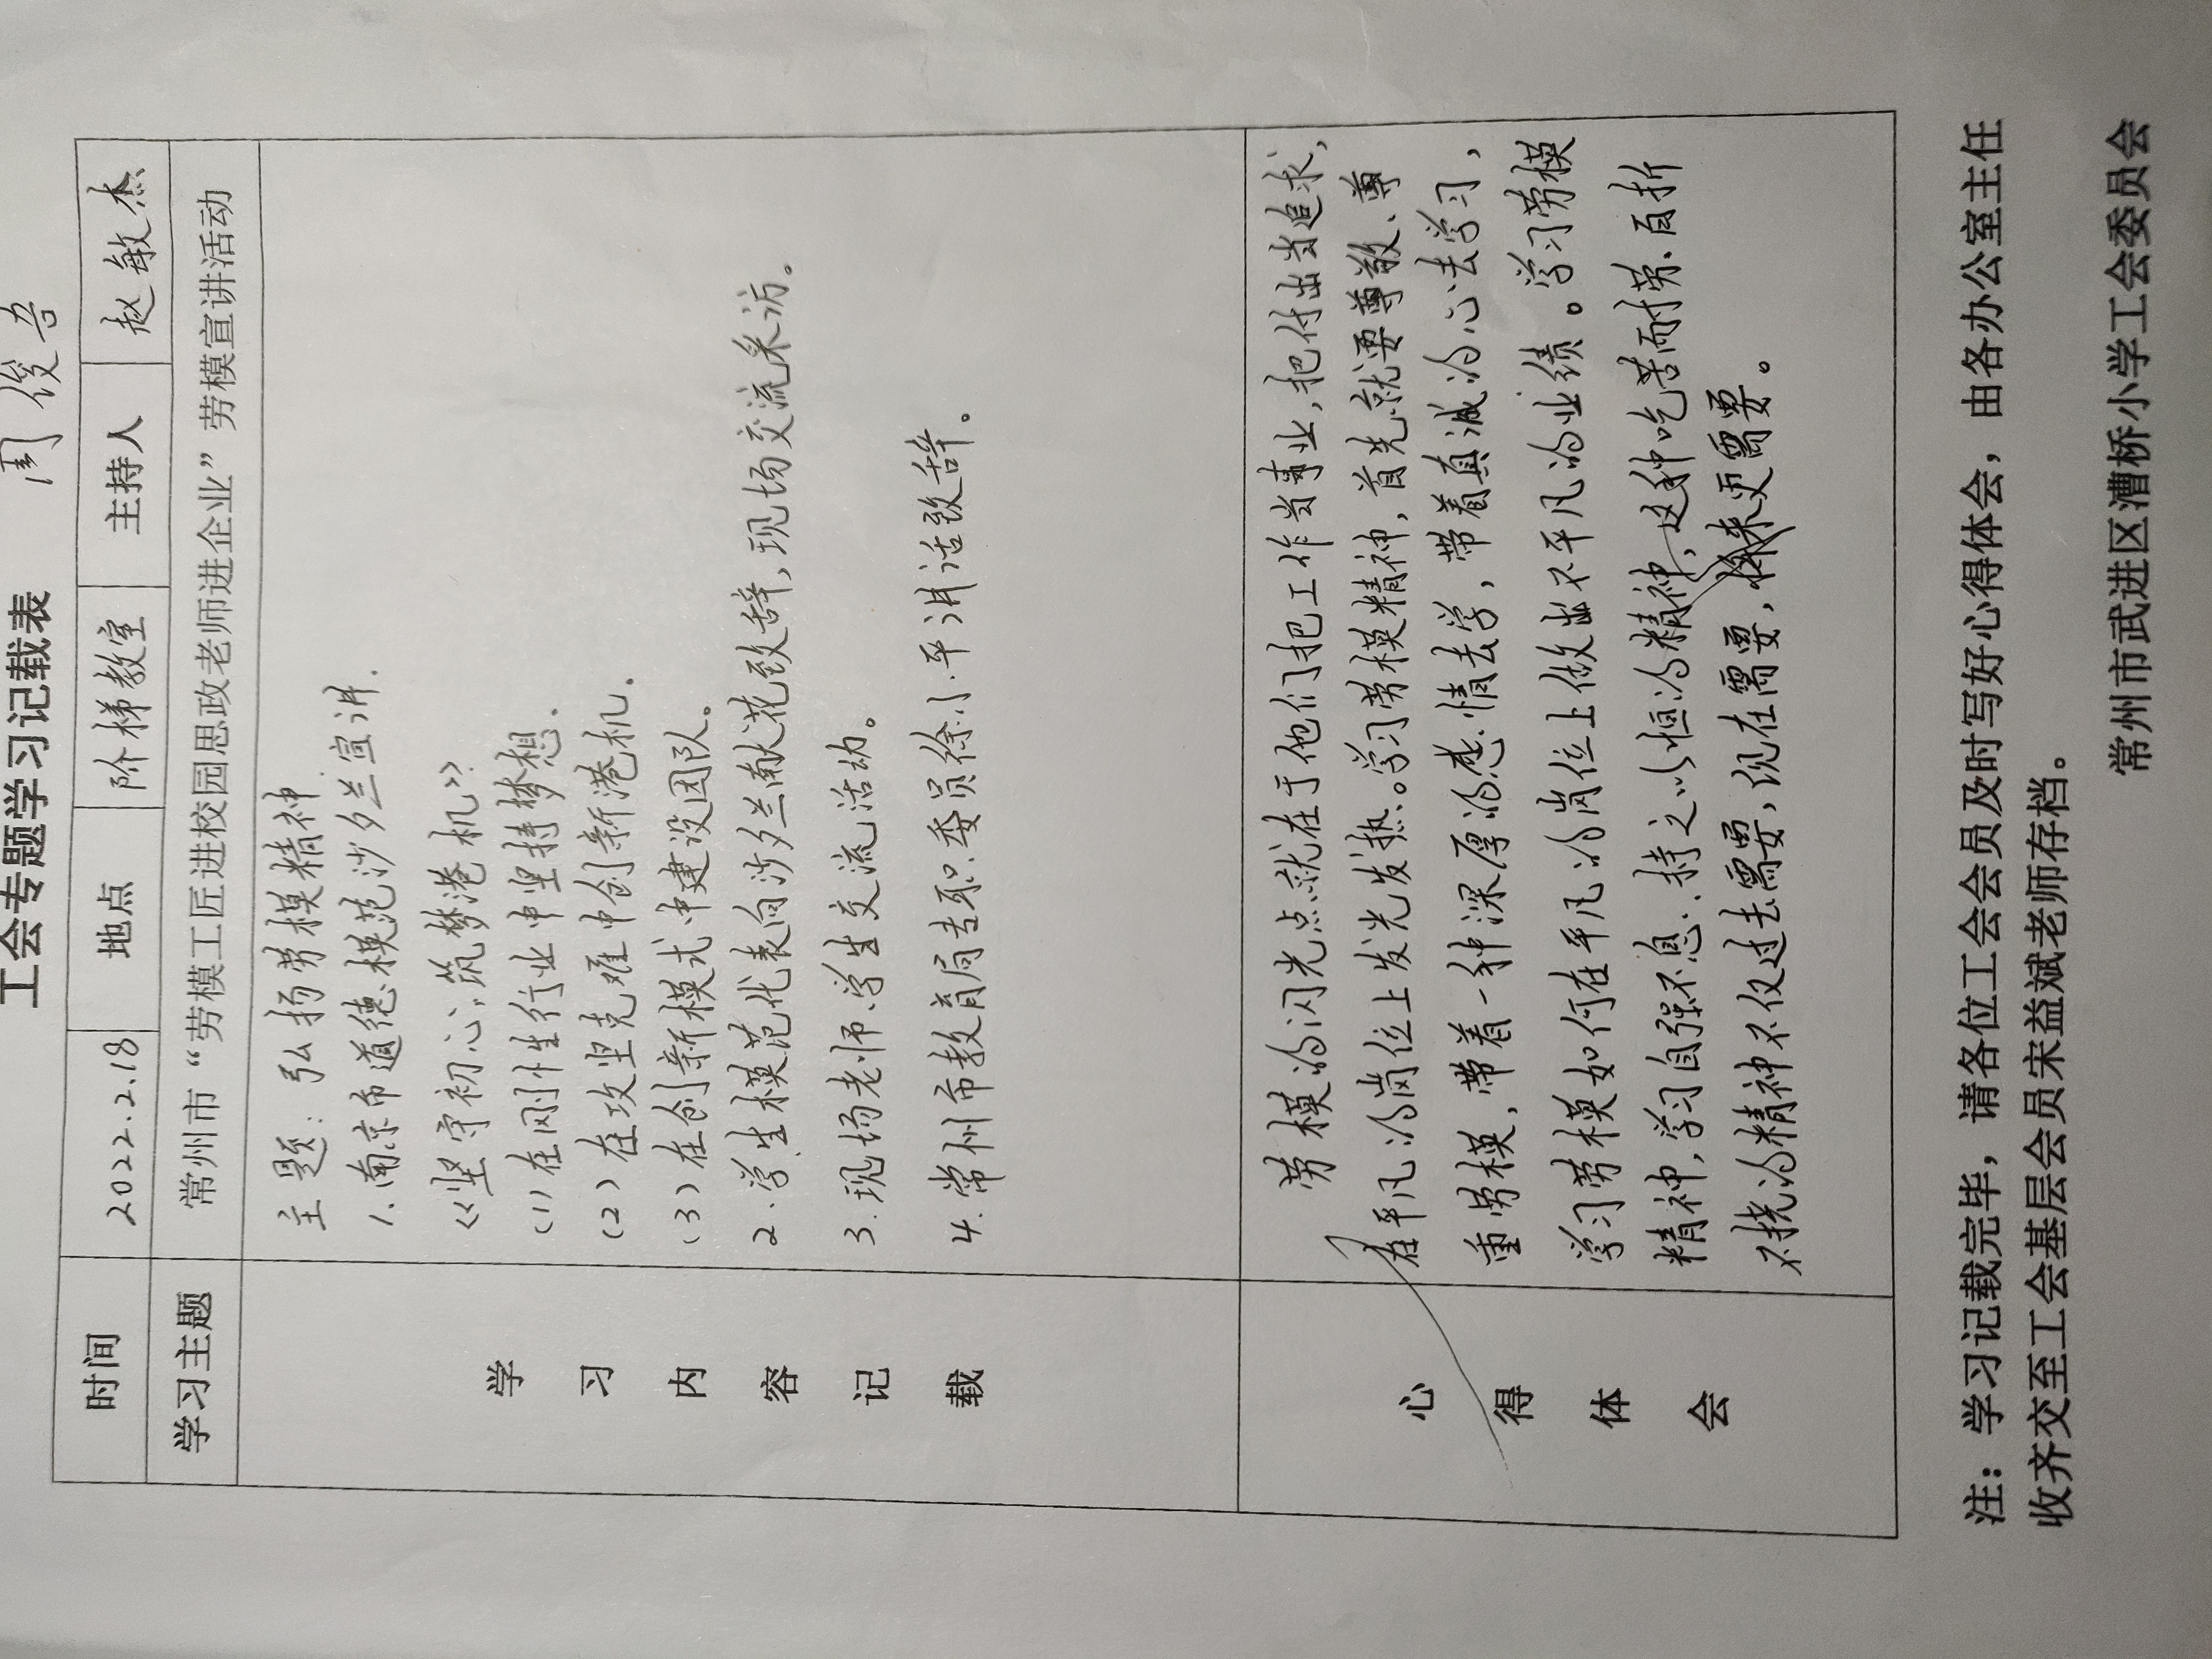 工会专题学习记载表
周俊吾
时间 2022.2.18 地点 阶梯教室 主持人 赵敏杰
学习主题 常州市“劳模工匠进校园思政老师进企业”劳模宣讲活动
学习内容记载
主题：弘扬劳模精神
1.南京市道德模范沙夕兰宣讲.
《坚守初心,筑梦港机》
(1)在刚性行业中坚持梦想.
(2)在攻坚克难中创新港机.
(3)在创新模式中建设团队。
2.学生模范代表向沙夕兰献花致辞,现场交流采访。
3.现场老师、学生交流活动。
4.常州市教育局专职委员徐小平讲话致辞。
心得体会
劳模的闪光点就在于他们把工作当事业,把付出当追求,
在平凡的岗位上发光发热。学习劳模精神,首先就要尊敬、尊
重劳模,带着一种深厚的感情去学,带着真诚的心去学习,
学习劳模如何在平凡的岗位上做出不平凡的业绩。学习劳模
精神,学习自强不息、持之以恒的精神,这种吃苦耐劳、百折
不挠的精神不仅过去需要,现在需要,将来更需要。
注：学习记载完毕，请各位工会会员及时写好心得体会，由各办公室主任
收齐交至工会基层会员宋益斌老师存档。
常州市武进区漕桥小学工会委员会